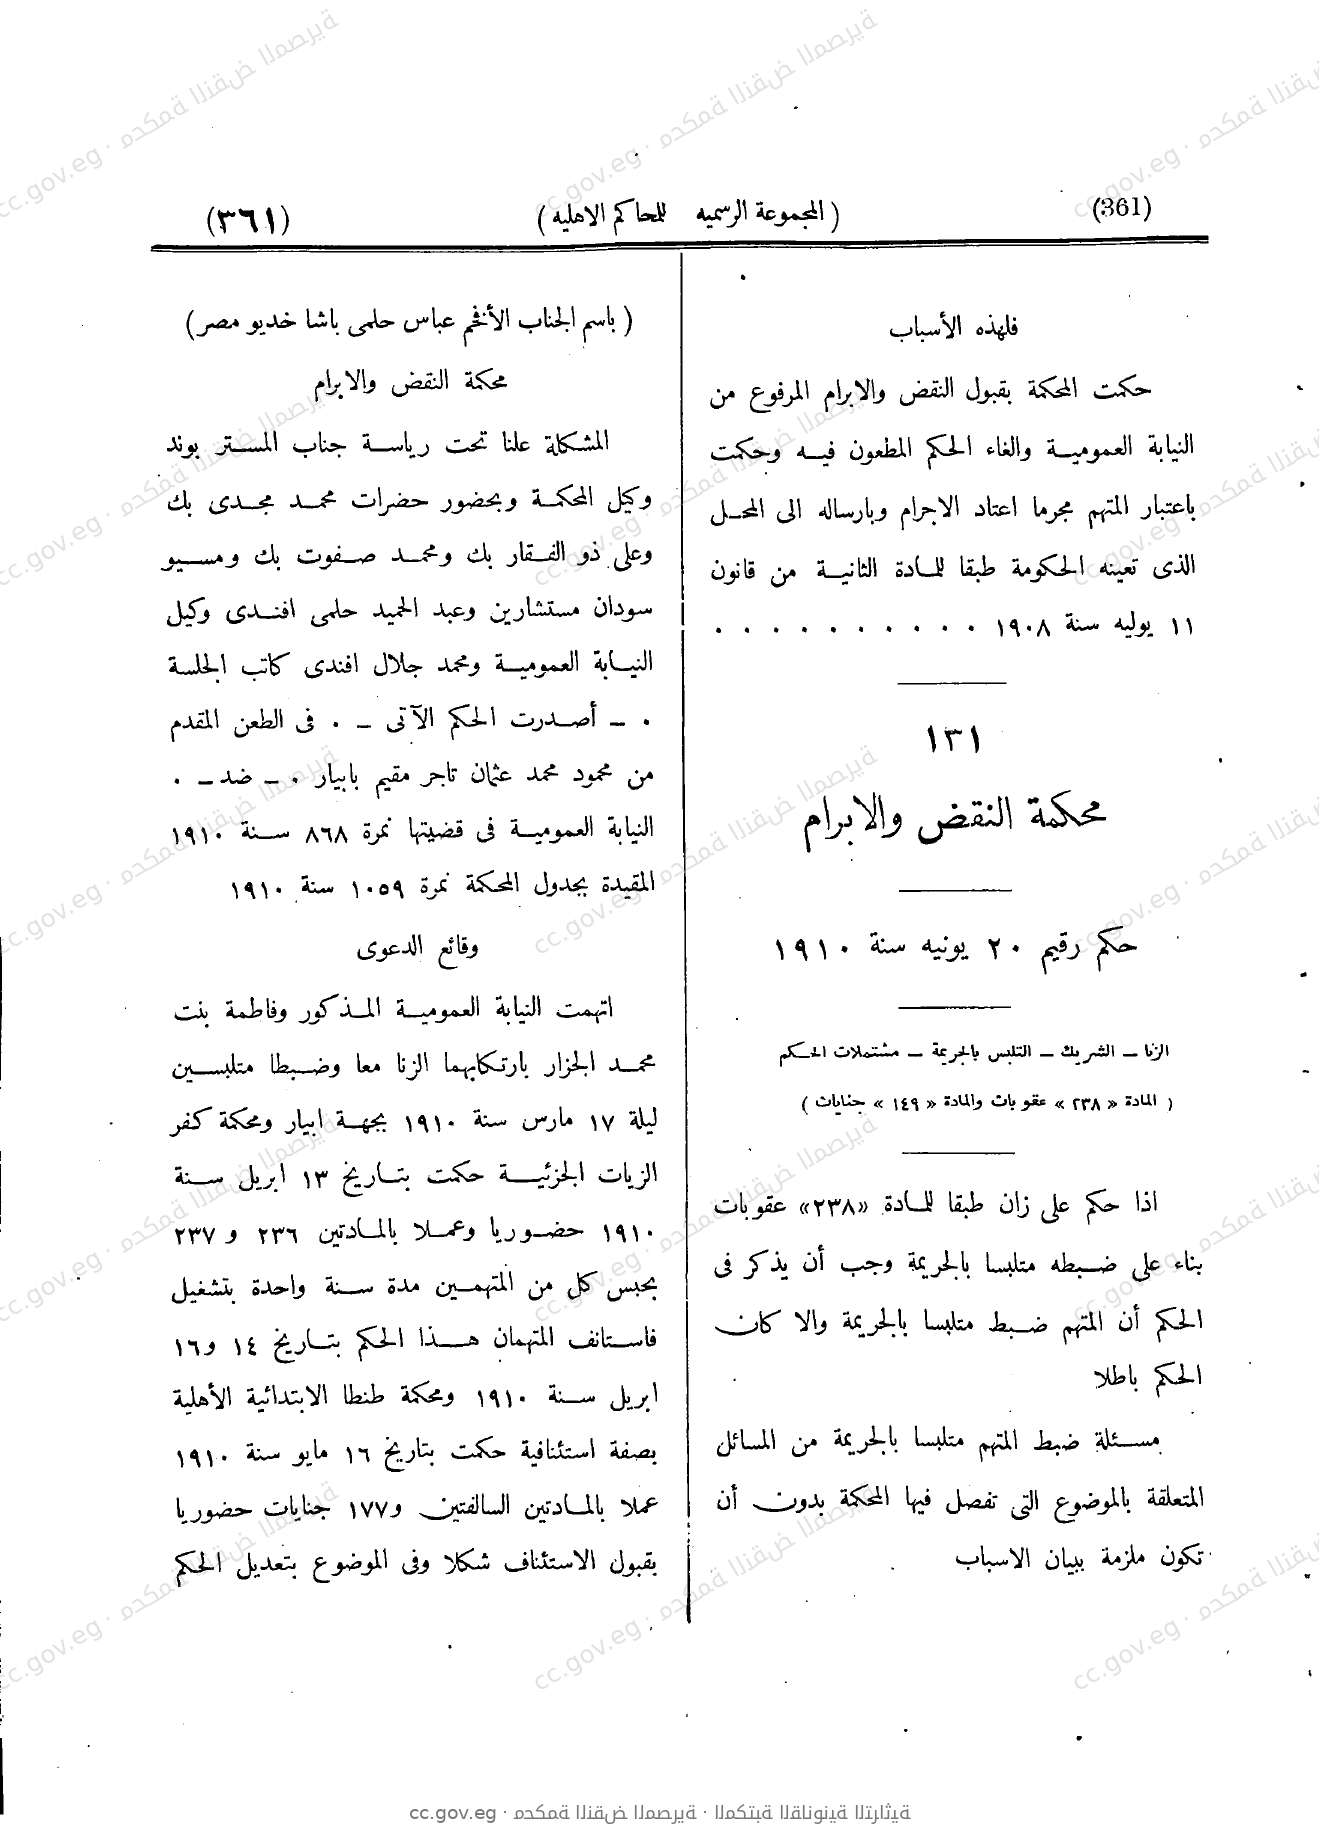 (361)
( المجموعة الرسميه للمحاكم الاهليه )
(٣٦١)
فلهذه الأسباب
حكمت المحكمة بقبول النقض والابرام المرفوع من
النيابة العمومية والغاء الحكم المطعون فيه وحكمت
باعتبار المتهم مجرما اعتاد الاجرام وبارساله الى المحل
الذى تعينه الحكومة طبقا للمادة الثانية من قانون
١١ يوليه سنة ١٩٠٨ . . . . . . . . . .
١٣١
محكمة النقض والابرام
حكم رقيم ٢٠ يونيه سنة ١٩١٠
الزنا – الشريك – التلبس بالجريمة – مشتملات الحكم
( المادة « ٢٣٨ » عقوبات والمادة « ١٤٩ » جنايات )
اذا حكم على زان طبقا للمادة «٢٣٨» عقوبات
بناء على ضبطه متلبسا بالجريمة وجب أن يذكر فى
الحكم أن المتهم ضبط متلبسا بالجريمة والا كان
الحكم باطلا
مسئلة ضبط المتهم متلبسا بالجريمة من المسائل
المتعلقة بالموضوع التى تفصل فيها المحكمة بدون أن
تكون ملزمة ببيان الاسباب
( باسم الجناب الأفخم عباس حلمى باشا خديو مصر )
محكمة النقض والابرام
المشكلة علنا تحت رياسة جناب المستر بوند
وكيل المحكمة وبحضور حضرات محمد مجدى بك
وعلى ذو الفقار بك ومحمد صفوت بك ومسيو
سودان مستشارين وعبد الحميد حلمى افندى وكيل
النيابة العمومية ومحمد جلال افندى كاتب الجلسة
. – أصدرت الحكم الآتى – . فى الطعن المقدم
من محمود محمد عثمان تاجر مقيم بابيار . – ضد – .
النيابة العمومية فى قضيتها نمرة ٨٦٨ سنة ١٩١٠
المقيدة بجدول المحكمة نمرة ١٠٥٩ سنة ١٩١٠
وقائع الدعوى
اتهمت النيابة العمومية المذكور وفاطمة بنت
محمد الجزار بارتكابهما الزنا معا وضبطا متلبسين
ليلة ١٧ مارس سنة ١٩١٠ بجهة ابيار ومحكمة كفر
الزيات الجزئية حكمت بتاريخ ١٣ ابريل سنة
١٩١٠ حضوريا وعملا بالمادتين ٢٣٦ و ٢٣٧
بحبس كل من المتهمين مدة سنة واحدة بتشغيل
فاستانف المتهمان هذا الحكم بتاريخ ١٤ و١٦
ابريل سنة ١٩١٠ ومحكمة طنطا الابتدائية الأهلية
بصفة استئنافية حكمت بتاريخ ١٦ مايو سنة ١٩١٠
عملا بالمادتين السالفتين و١٧٧ جنايات حضوريا
بقبول الاستئناف شكلا وفى الموضوع بتعديل الحكم
cc.gov.eg · محكمة النقض المصرية · المكتبة القانونية التراثية